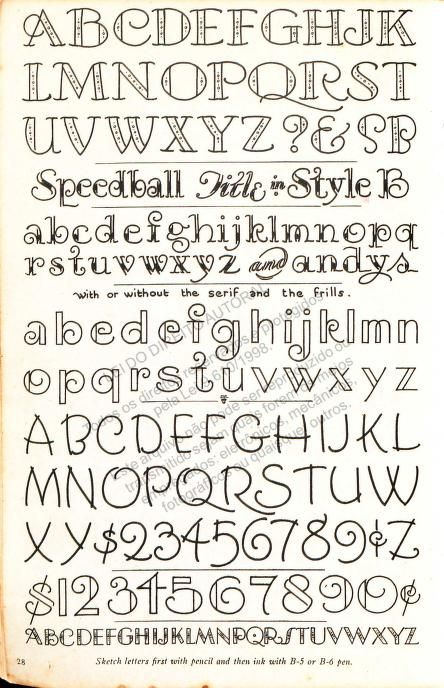 ABCDEFGHIJK
LMNOPQRST
UVWXYZ?&SB
Speedball Title in Style B
abcdefghijklmnopq
rstuvwxyz and andys
with or without the serif and the frills.
abcdefghijklmn
opqrstuvwxyz
ABCDEFGHIJKL
MNOPQRSTUW
XY$23456789¢Z
$1234567890¢
ABCDEFGHIJKLMNPQRSTUVWXYZ
28 Sketch letters first with pencil and then ink with B-5 or B-6 pen.
DO DIREITO AUTORAL
Todos os direitos protegidos
pela Lei 1998.
Este arquivo não pode ser reproduzido ou
transmitido sejam quais forem os meios
empregados: eletrônicos, mecânicos,
fotográficos ou quaisquer outros.